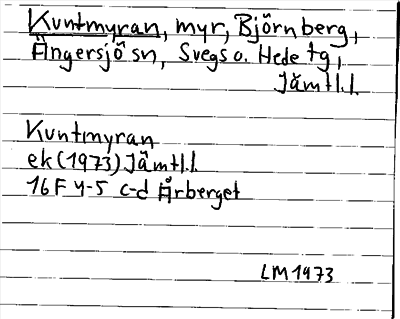 Kuntmyran, myr, Björnberg,
Ängersjö sn, Svegs o. Hede tg,
Jämtl.l.
Kuntmyran
ek (1973) Jämtl.l.
16F 4-5 c-d Årberget
LM1973